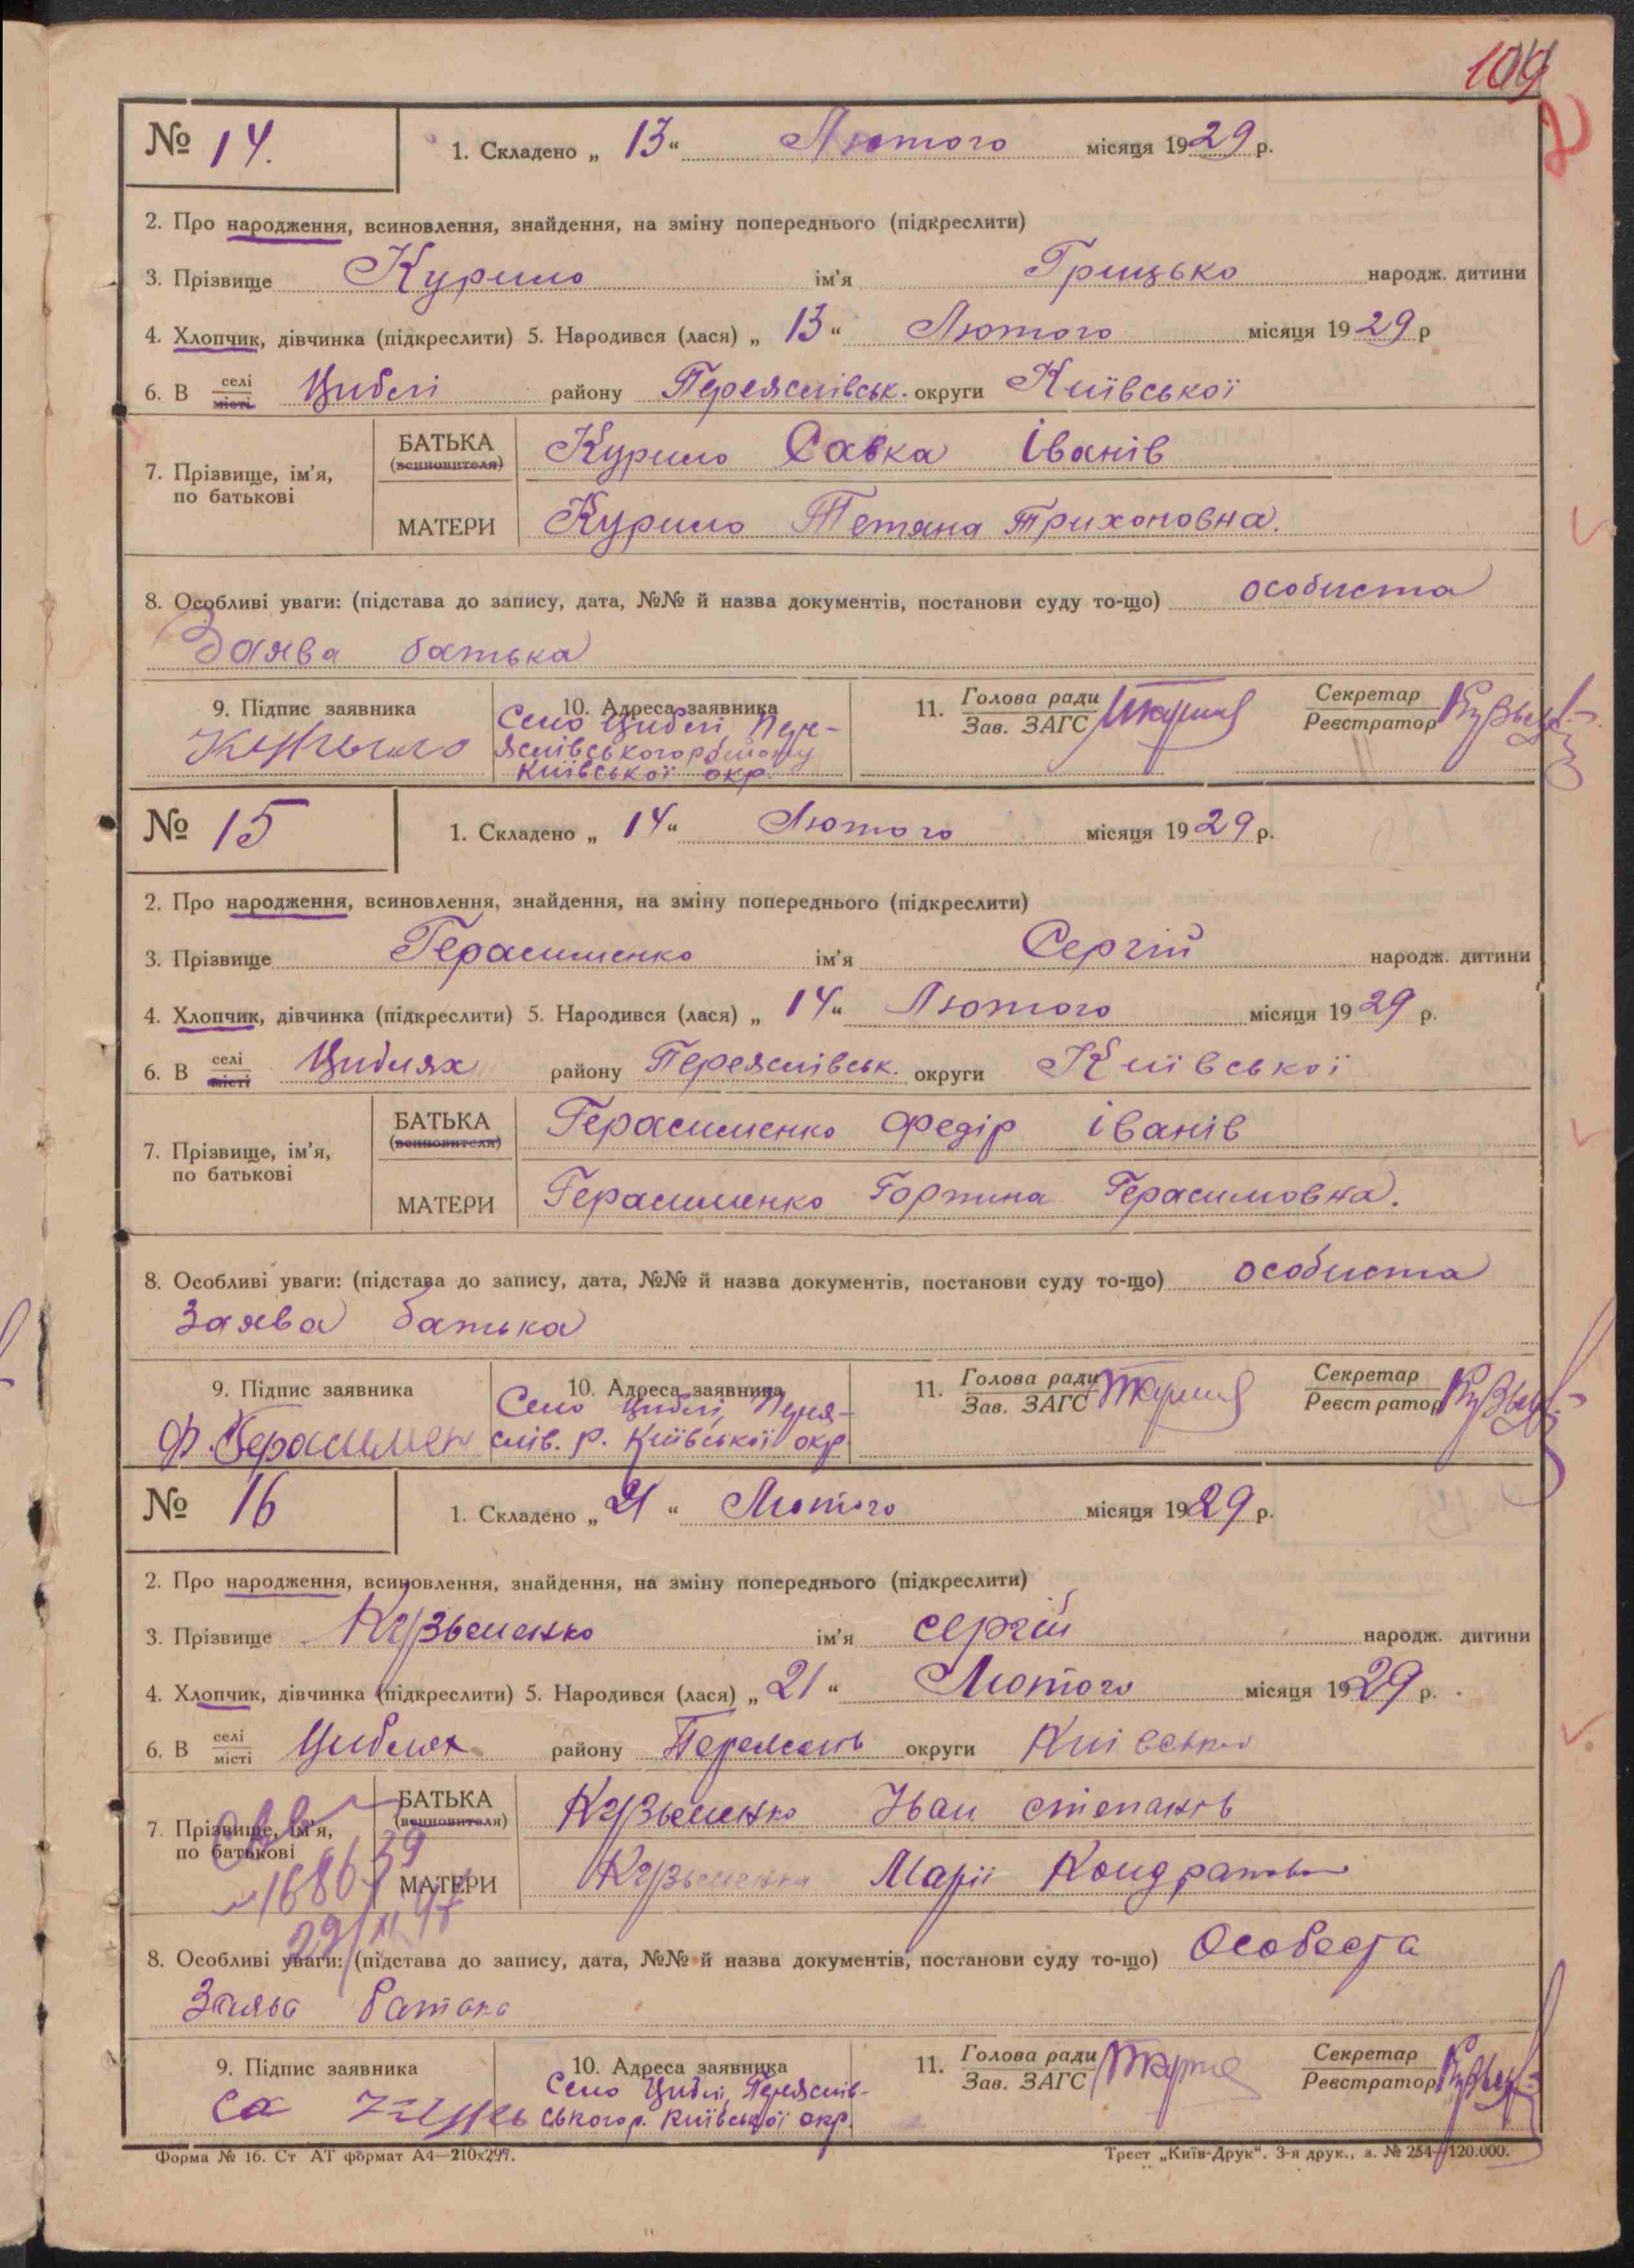 109
№ 14. 1. Складено „ 13 “ Лютого місяця 1929 р.
2. Про народження, всиновлення, знайдення, на зміну попереднього (підкреслити)
3. Прізвище Курило ім'я Грицько народж. дитини
4. Хлопчик, дівчинка (підкреслити) 5. Народився (лася) „ 13 “ Лютого місяця 1929 р
6. В селі місті Циблі району Переяслівськ. округи Київської
7. Прізвище, ім'я, по батькові БАТЬКА (всиновителя) Курило Савка Іванів
МАТЕРИ Курило Тетяна Трихоновна.
8. Особливі уваги: (підстава до запису, дата, №№ й назва документів, постанови суду то-що) особиста
Заява батька
9. Підпис заявника 10. Адреса заявника 11. Голова ради Зав. ЗАГС Секретар Реєстратор
Курыло Село Циблі, Пере-
яслівського району
Київської окр.
№ 15 1. Складено „ 14 “ Лютого місяця 1929 р.
2. Про народження, всиновлення, знайдення, на зміну попереднього (підкреслити)
3. Прізвище Герасименко ім'я Сергій народж. дитини
4. Хлопчик, дівчинка (підкреслити) 5. Народився (лася) „ 14 “ Лютого місяця 1929 р.
6. В селі місті Циблях району Переяслівськ. округи Київської
7. Прізвище, ім'я, по батькові БАТЬКА (всиновителя) Герасименко Федір Іванів
МАТЕРИ Герасименко Горпина Герасимовна.
8. Особливі уваги: (підстава до запису, дата, №№ й назва документів, постанови суду то-що) особиста
Заява батька
9. Підпис заявника 10. Адреса заявника 11. Голова ради Зав. ЗАГС Секретар Реєстратор
Ф. Герасимен Село Циблі, Перея-
слів. р. Київської окр.
№ 16 1. Складено „ 21 “ Лютого місяця 1929 р.
2. Про народження, всиновлення, знайдення, на зміну попереднього (підкреслити)
3. Прізвище Кузьменко ім'я Сергій народж. дитини
4. Хлопчик, дівчинка (підкреслити) 5. Народився (лася) „ 21 “ Лютого місяця 1929 р.
6. В селі місті Циблях району округи
7. Прізвище, ім'я, по батькові БАТЬКА (всиновителя) Кузьменко Іван степанів
МАТЕРИ Кузьменко Марії
8. Особливі уваги: (підстава до запису, дата, №№ й назва документів, постанови суду то-що)
Заява батька
9. Підпис заявника 10. Адреса заявника 11. Голова ради Зав. ЗАГС Секретар Реєстратор
Село Циблі, Переяслів-
ського р. Київської окр.
Форма № 16. Ст АТ формат А4—210x297. Трест „Київ-Друк“. 3-я друк., з. № 254—120.000.